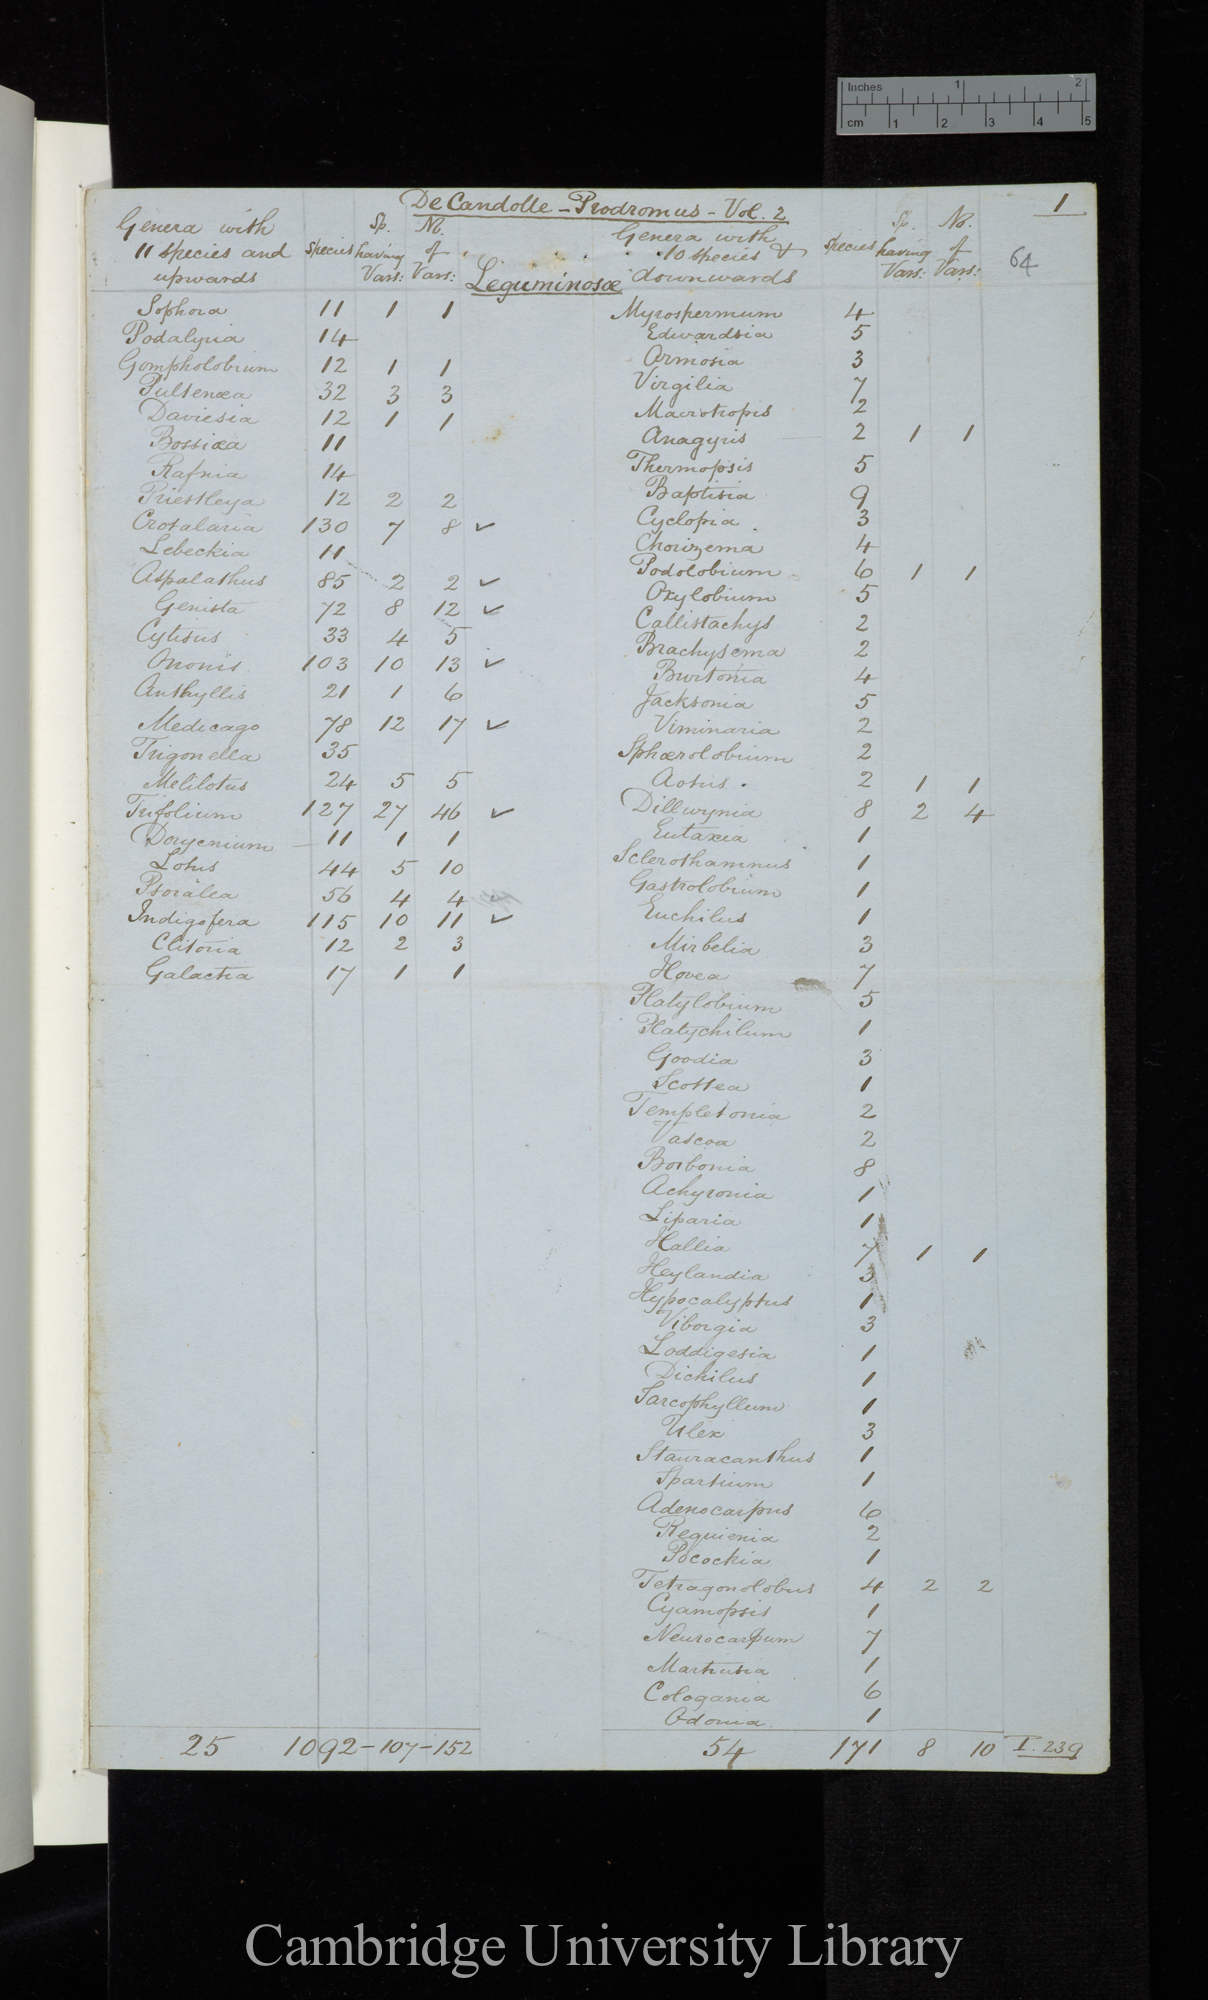 Inches 1 2
cm 1 2 3 4 5
De Candolle - Prodromus - Vol. 2
1
64
Genera with 11 species and upwards
Species
Sp. having Vars:
No. of Vars:
Leguminosæ
Genera with 10 species & downwards
Species
Sp. having Vars:
No. of Vars:
Sophora 11 1 1
Podalyria 14
Gompholobium 12 1 1
Pultenœa 32 3 3
Daviesia 12 1 1
Bossiæa 11
Rafnia 14
Priestleya 12 2 2
Crotalaria 130 7 8 ✓
Lebeckia 11
Aspalathus 85 2 2 ✓
Genista 72 8 12 ✓
Cytisus 33 4 5
Ononis 103 10 13 ✓
Anthyllis 21 1 6
Medicago 78 12 17 ✓
Trigonella 35
Melilotus 24 5 5
Trifolium 127 27 46 ✓
Dorycnium 11 1 1
Lotus 44 5 10
Psoralea 56 4 4
Indigofera 115 10 11 ✓
Clitoria 12 2 3
Galactia 17 1 1
25 1092 - 107 - 152
Myrospermum 4
Edwardsia 5
Ormosia 3
Virgilia 7
Macrotropis 2
Anagyris 2 1 1
Thermopsis 5
Baptisia 9
Cyclopia 3
Chorizema 4
Podolobium 6 1 1
Oxylobium 5
Callistachys 2
Brachysema 2
Burtonia 4
Jacksonia 5
Viminaria 2
Sphærolobium 2
Aotus 2 1 1
Dillwynia 8 2 4
Eutaxia 1
Sclerothamnus 1
Gastrolobium 1
Euchilus 1
Mirbelia 3
Hovea 7
Platylobium 5
Platychilum 1
Goodia 3
Scottea 1
Templetonia 2
Vascoa 2
Borbonia 8
Achyronia 1
Liparia 1
Hallia 7 1 1
Heylandia 3
Hypocalyptus 1
Viborgia 3
Loddigesia 1
Dichilus 1
Sarcophyllum 1
Ulex 3
Stauracanthus 1
Spartium 1
Adenocarpus 6
Requienia 2
Pocockia 1
Tetragonolobus 4 2 2
Cyamopsis 1
Neurocarpum 7
Martiusia 1
Cologania 6
Odonia 1
54 171 8 10 I. 239
Cambridge University Library